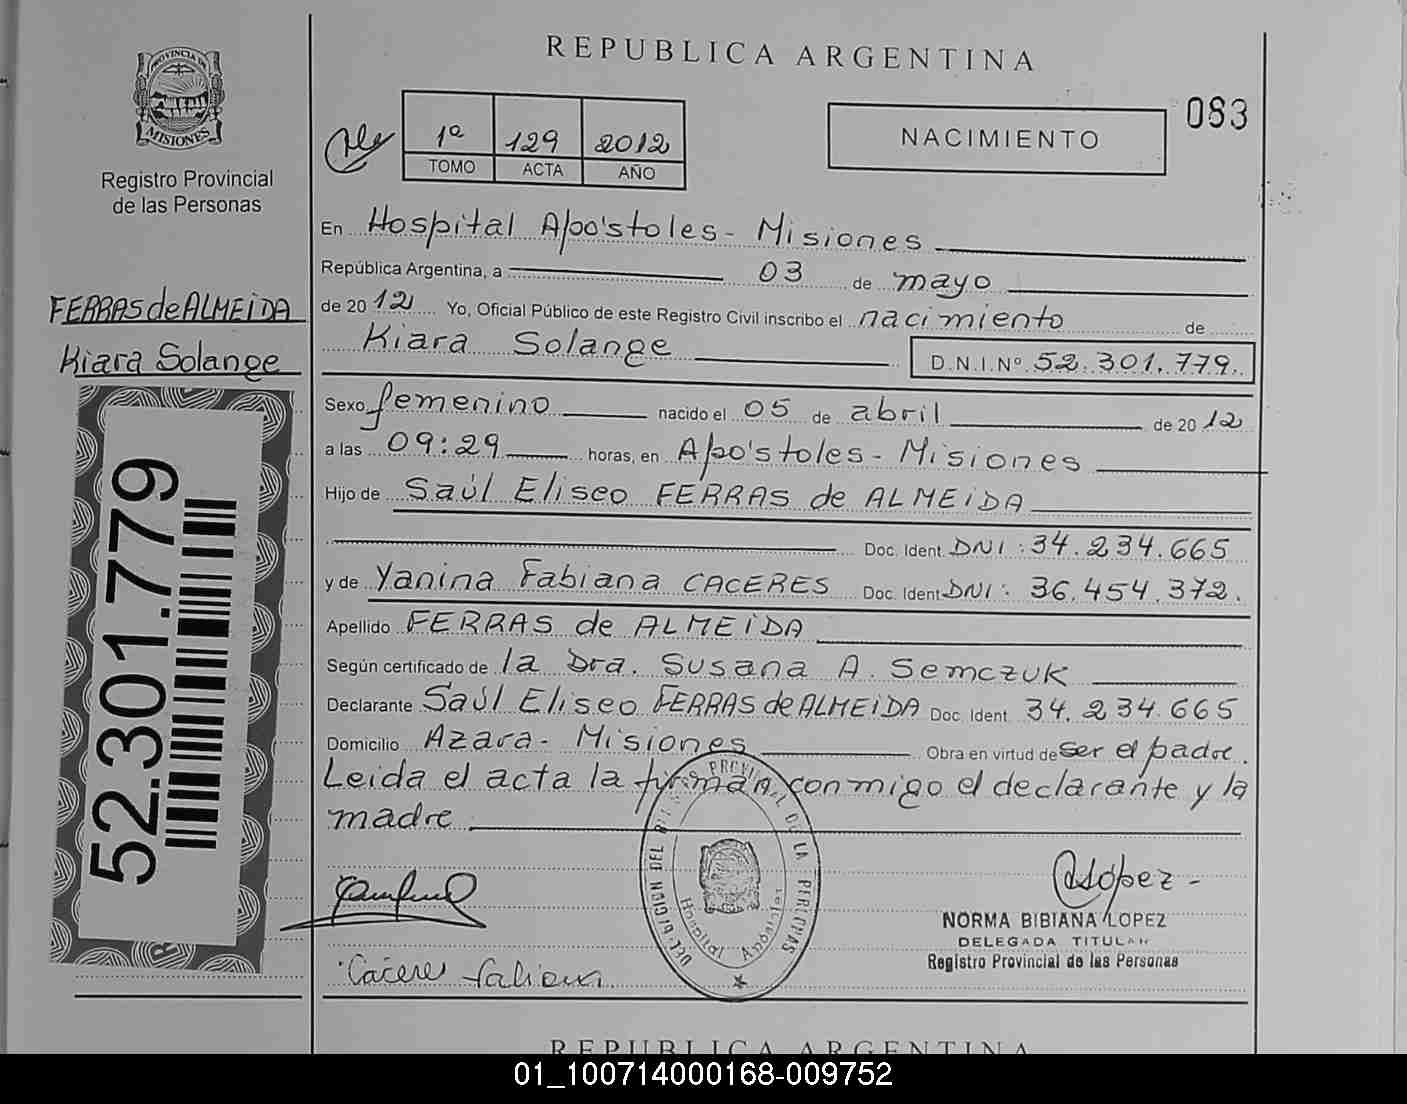 REPUBLICA ARGENTINA
PROVINCIA DE MISIONES
Registro Provincial
de las Personas
1ª 129 2012
TOMO ACTA AÑO
NACIMIENTO
083
En Hospital Apóstoles - Misiones
República Argentina, a 03 de mayo
de 2012 Yo, Oficial Público de este Registro Civil inscribo el nacimiento de
Kiara Solange D.N.I.Nº 52.301.779.
FERRAS de ALMEIDA
Kiara Solange
52.301.779
Sexo femenino nacido el 05 de abril de 2012
a las 09:29 horas, en Apóstoles - Misiones
Hijo de Saúl Eliseo FERRAS de ALMEIDA
Doc. Ident. DNI: 34.234.665
y de Yanina Fabiana CACERES Doc. Ident DNI: 36.454.372.
Apellido FERRAS de ALMEIDA
Según certificado de la Dra. Susana A. Semczuk
Declarante Saúl Eliseo FERRAS de ALMEIDA Doc. Ident. 34.234.665
Domicilio Azara - Misiones Obra en virtud de ser el padre.
Leida el acta la firman conmigo el declarante y la
madre
Hospital Apóstoles
López -
NORMA BIBIANA LOPEZ
DELEGADA TITULAR
Registro Provincial de las Personas
Caceres Fabiana
REPUBLICA ARGENTINA
01_100714000168-009752